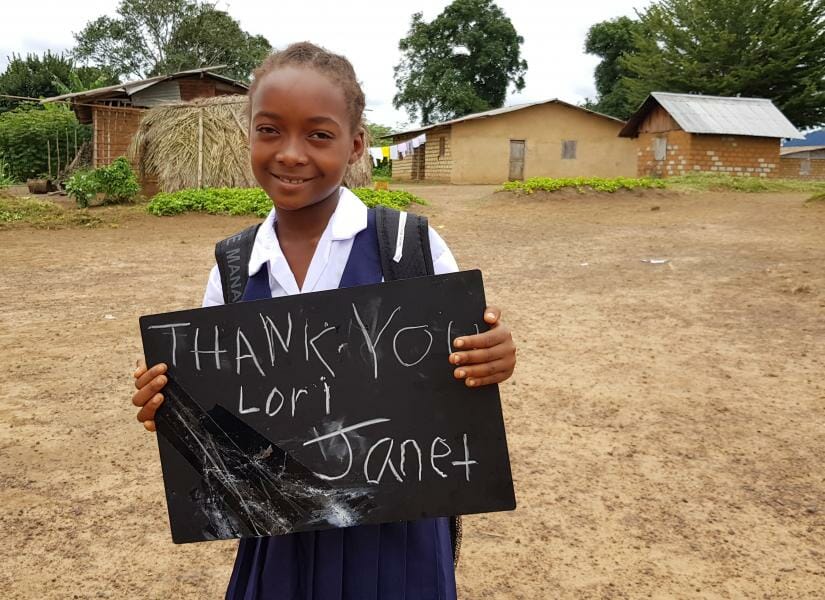 THANK YOU
Lori
Janet
E MANA